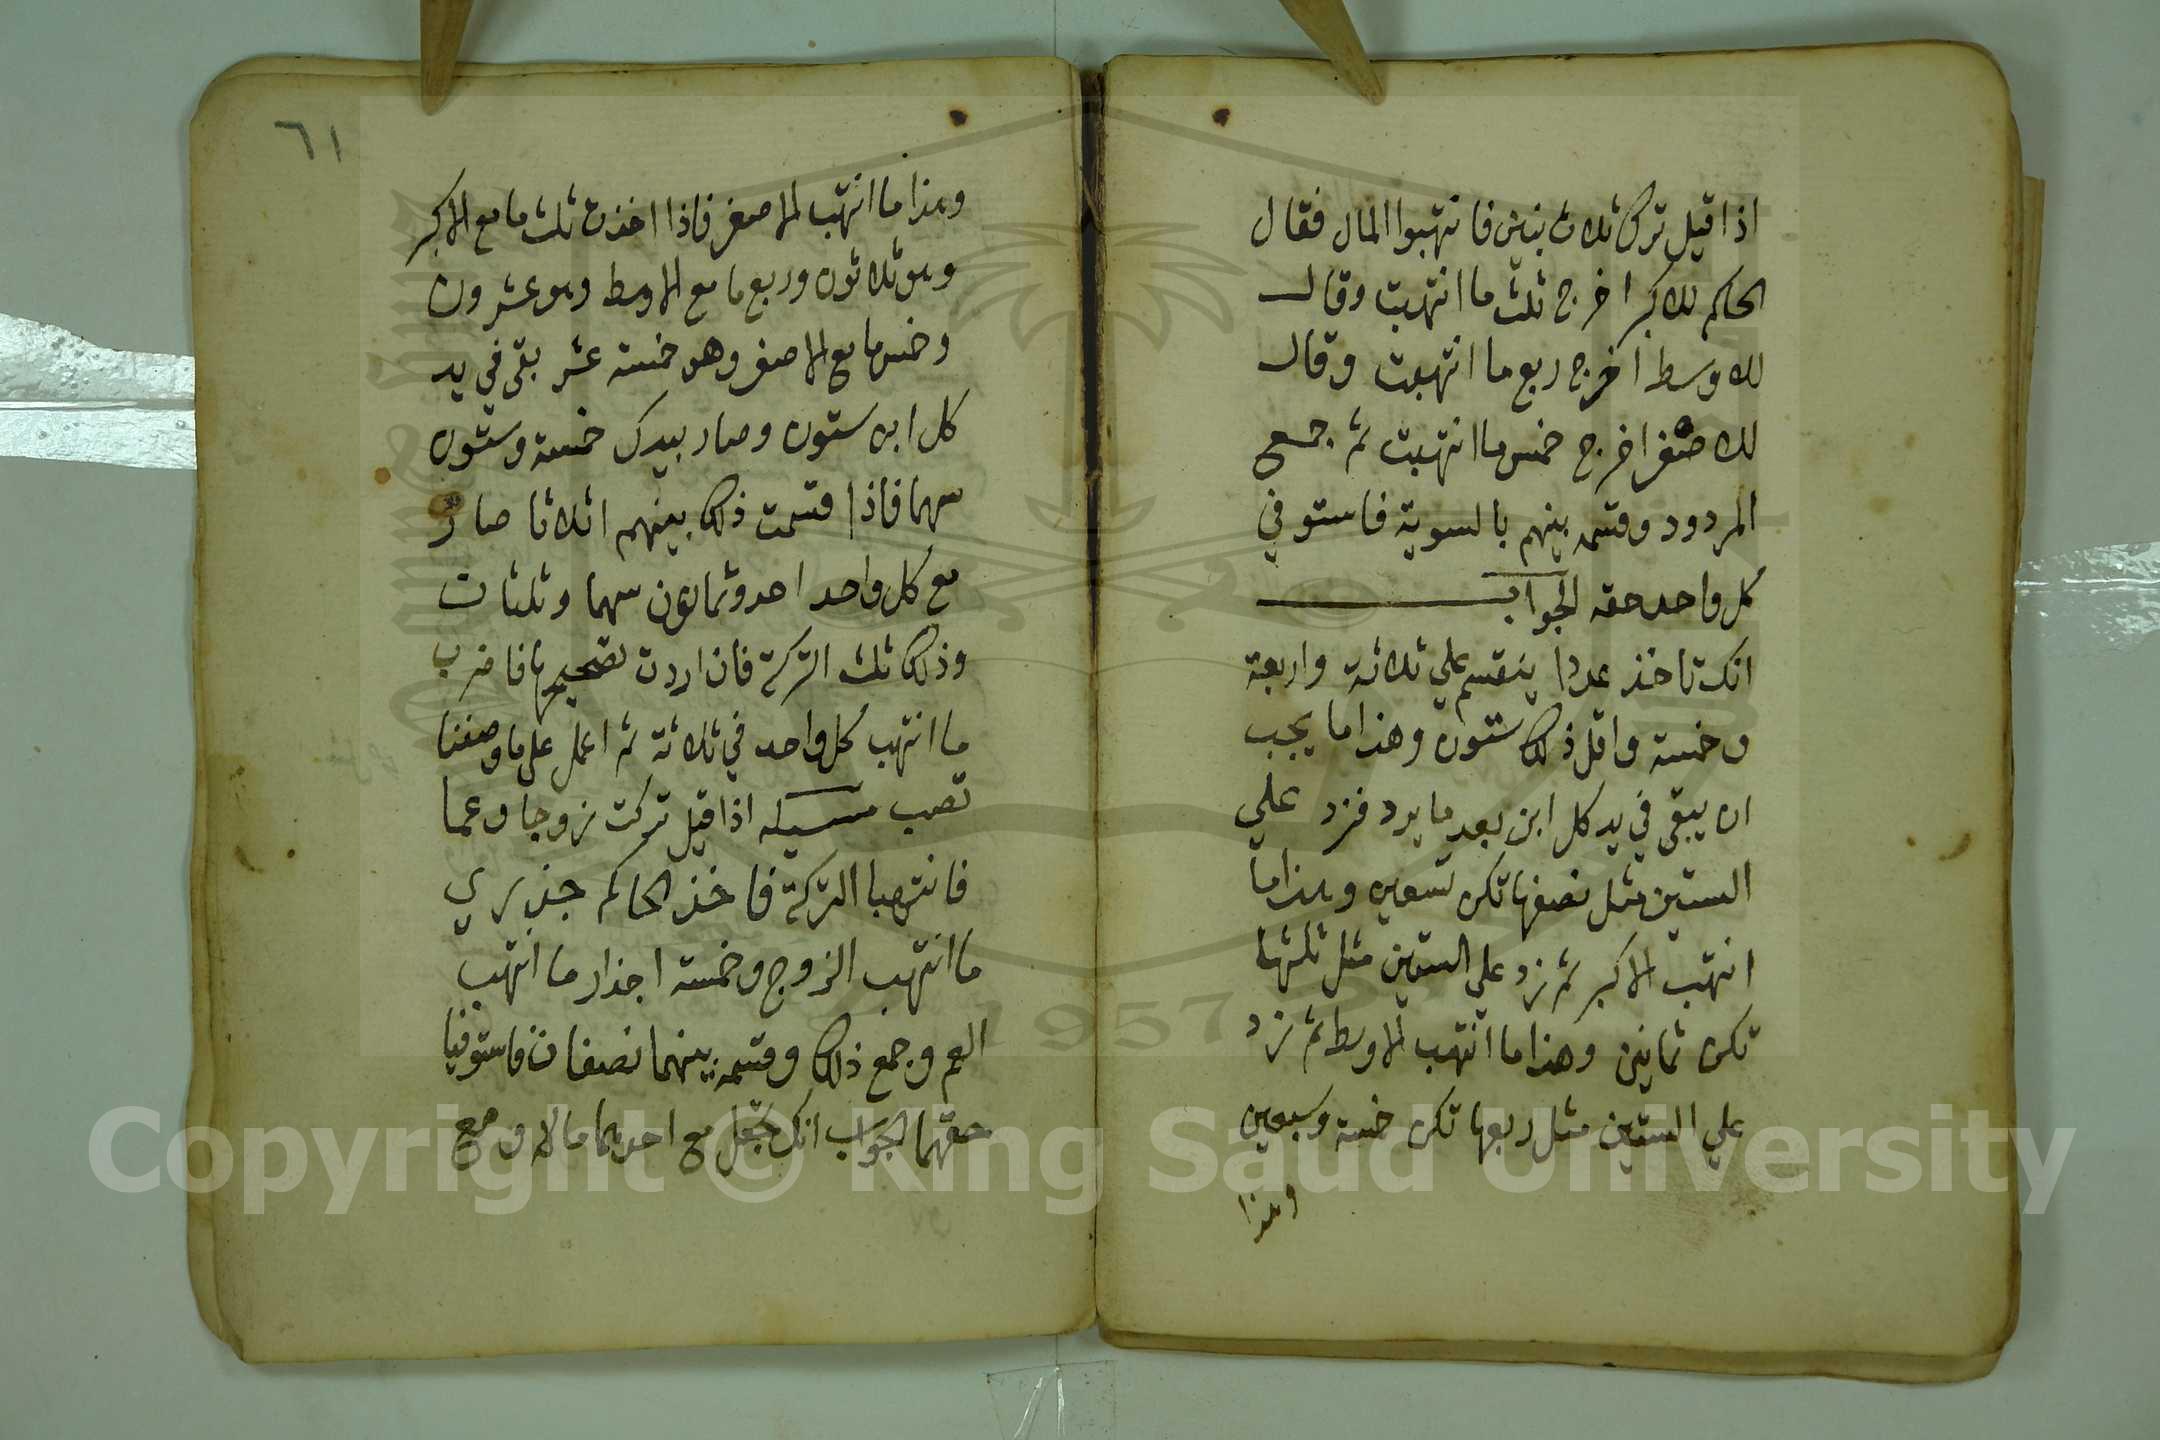 اذا قيل ترك ثلاث بنين فانتهبوا المال فقال
الحاكم للاكبر اخرج ثلث ما انتهبت وقال
للاوسط اخرج ربع ما انتهبت وقال
للاصغر اخرج خمس ما انتهبت ثم جمع
المردود وقسمه بينهم بالسوية فاستوفي
كل واحد حقه الجواب
انك تاخذ عددا ينقسم علي ثلاثة واربعة
وخمسة واقل ذلك ستون وهذا ما يجب
ان يبقي في يد كل ابن بعد ما يرد فزد علي
الستين مثل نصفها تكن تسعين وهذا ما
انتهب الاكبر ثم زد علي الستين مثل ثلثها
تكن ثمانين وهذا ما انتهب الاوسط ثم زد
علي الستين مثل ربعها تكن خمسة وسبعين
وهذا
٦١
وهذا ما انتهب الاصغر فاذا اخذت ثلث ما مع الاكبر
وهو ثلاثون وربع ما مع الاوسط وهو عشرون
وخمس ما مع الاصغر وهو خمسة عشر بقي في يد
كل ابن ستون وصار بيدك خمسة وستون
سهما فاذا قسمت ذلك بينهم اثلاثا صار
مع كل واحد احد وثمانون سهما وثلثان
وذلك ثلث التركة فان اردت تصحيحها فاضرب
ما انتهب كل واحد في ثلاثة ثم اعمل علي ما وصفنا
تصب مسيلة اذا قيل تركت زوجا وعما
فانتهبا التركة فاخذ الحاكم جذري
ما انتهب الزوج وخمسة اجذار ما انتهب
العم وجمع ذلك وقسمه بينهما نصفان فاستوفيا
حقهما الجواب انك تجعل مع احدهما مالا ومع
1957
Copyright © King Saud University